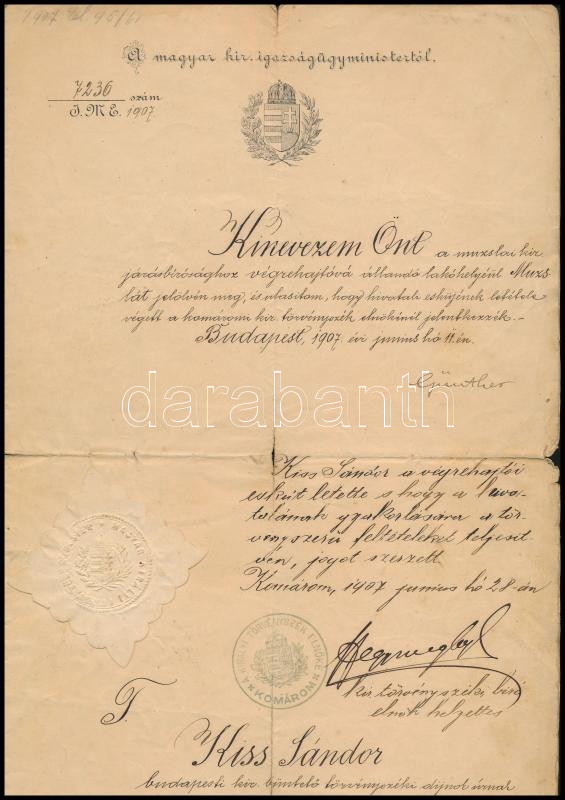 1907
A magyar kir. igazságügyministertől.
7236 szám
I. M. E. 1907
Kinevezem Önt a muzslai kir.
járásbirósághoz végrehajtóvá állandó lakóhelyéül Muzs
lát jelölvén meg, és utasitom, hogy hivatali esküjének letétele
végett a komáromi kir. törvényszék elnökénél jelentkezzék.-
Budapest, 1907. évi junius hó 11.-én.
Günther
darabanth
Kiss Sándor a végrehajtói
esküt letette s hogy a hiva-
talának gyakorlására a tör-
vényszerü feltételeket teljesit-
vén, jogot szerzett.
Komárom, 1907 junius hó 28-án
A KIRÁLYI TÖRVÉNYSZÉK ELNÖKE
KOMÁROM
kir. törvényszéki biró
elnök helyettes
T.
Kiss Sándor
budapesti kir. büntető törvényszéki dijnok úrnak